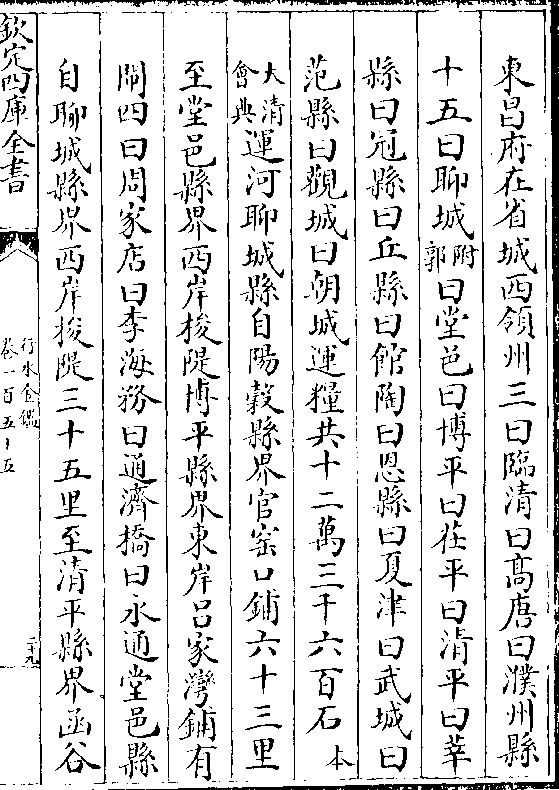 東昌府在省城西領州三曰臨清曰髙唐曰濮州縣
十五曰聊城附郭曰堂邑曰博平曰茌平曰清平曰莘
縣曰冠縣曰丘縣曰館陶曰恩縣曰夏津曰武城曰
范縣曰觀城曰朝城運糧共十二萬三千六百石本
大清會典運河聊城縣自陽穀縣界官窑口鋪六十三里
至堂邑縣界西岸梭隄博平縣界東岸吕家灣鋪有
閘四曰周家店曰李海務曰通濟橋曰永通堂邑縣
自聊城縣界西岸梭隄三十五里至清平縣界函谷
欽定四庫全書
行水金鑑
卷一百五十五
二十九